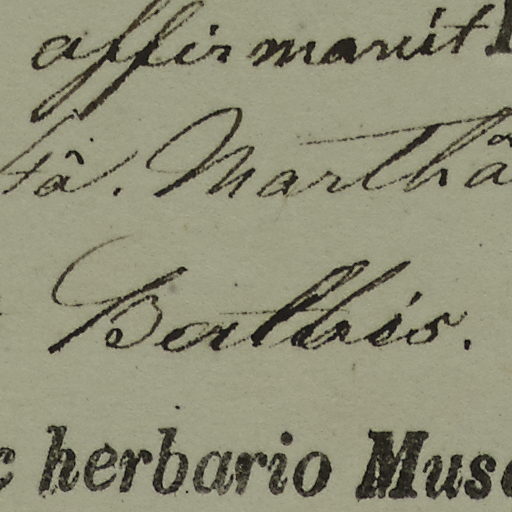 affirmavit
tâ. Marthâ
Balbis.
c herbario Muse